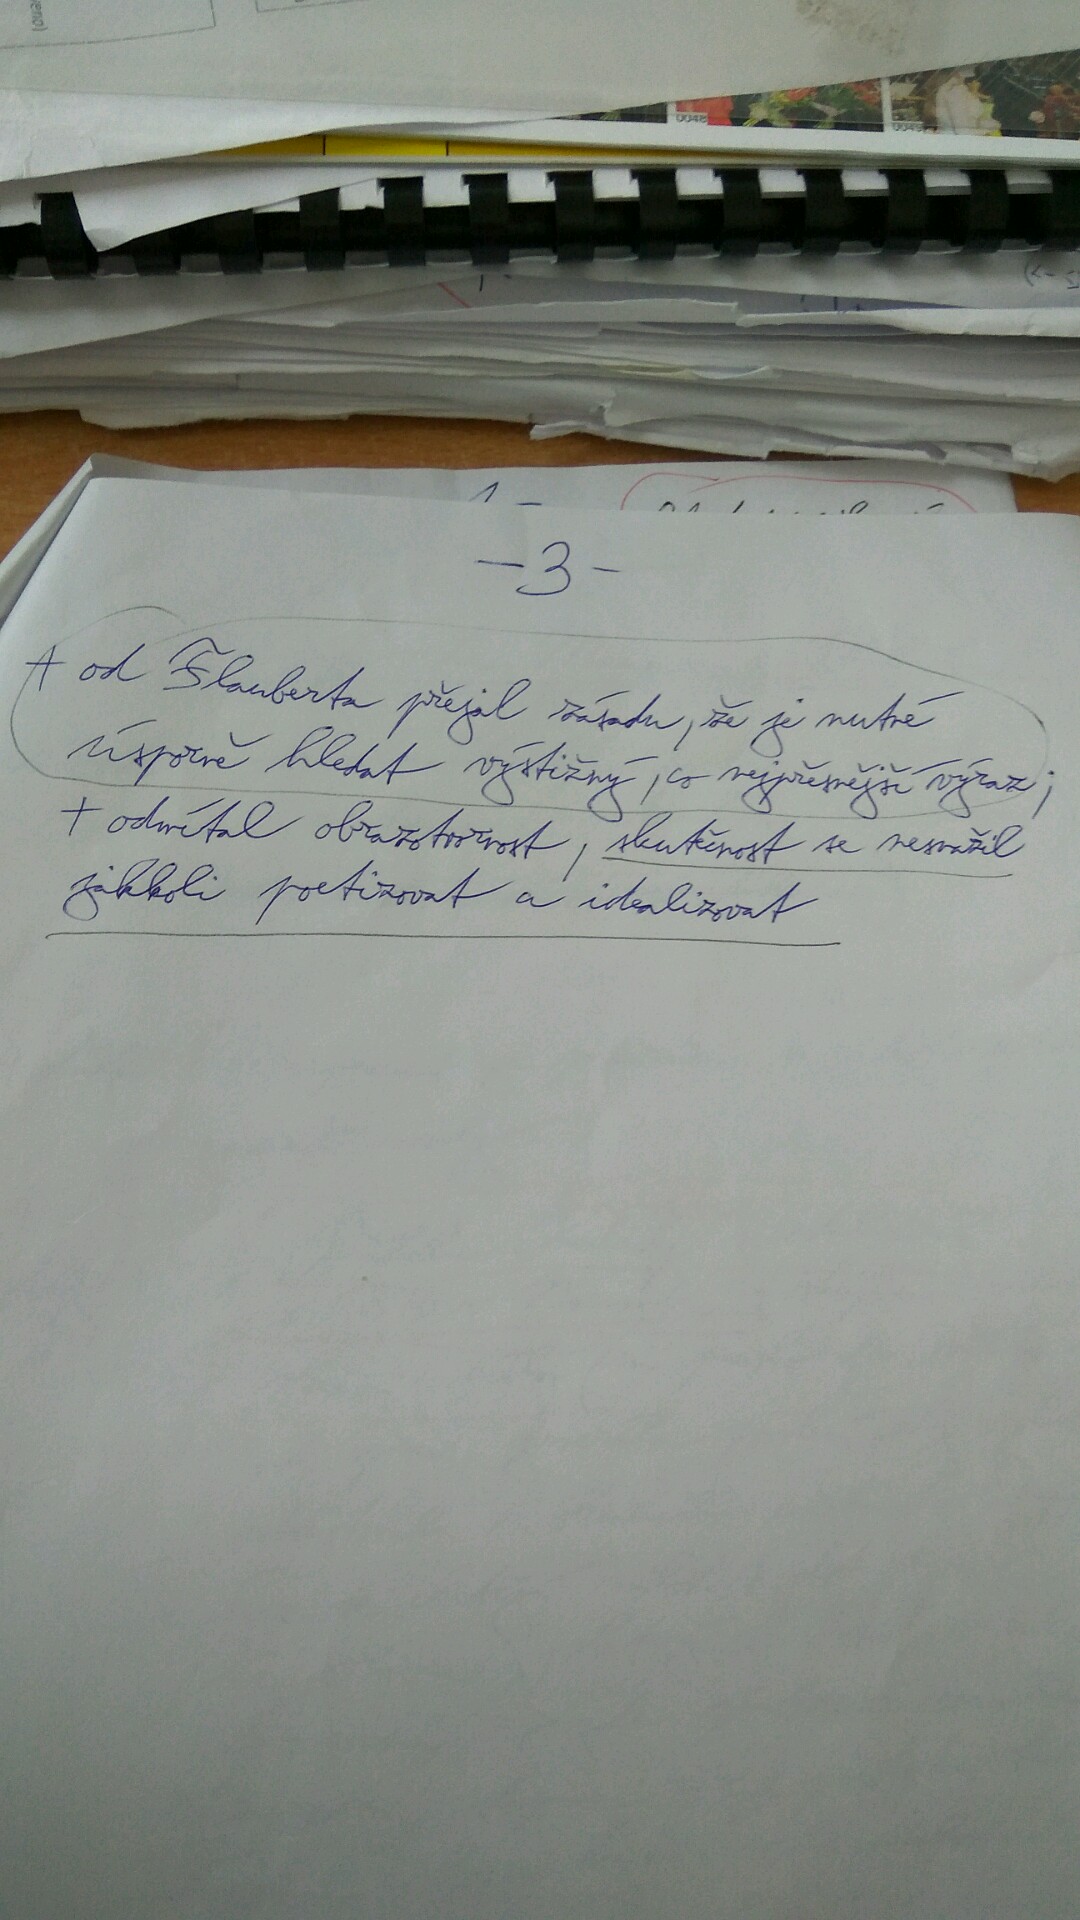 0048
0049
1-
-3-
+ od Flauberta přejal zásadu, že je nutné
úsporně hledat výstižný, co nejpřesnější výraz;
+ odmítal obrazotvornost, skutečnost se nesnažil
jakkoli poetizovat a idealizovat